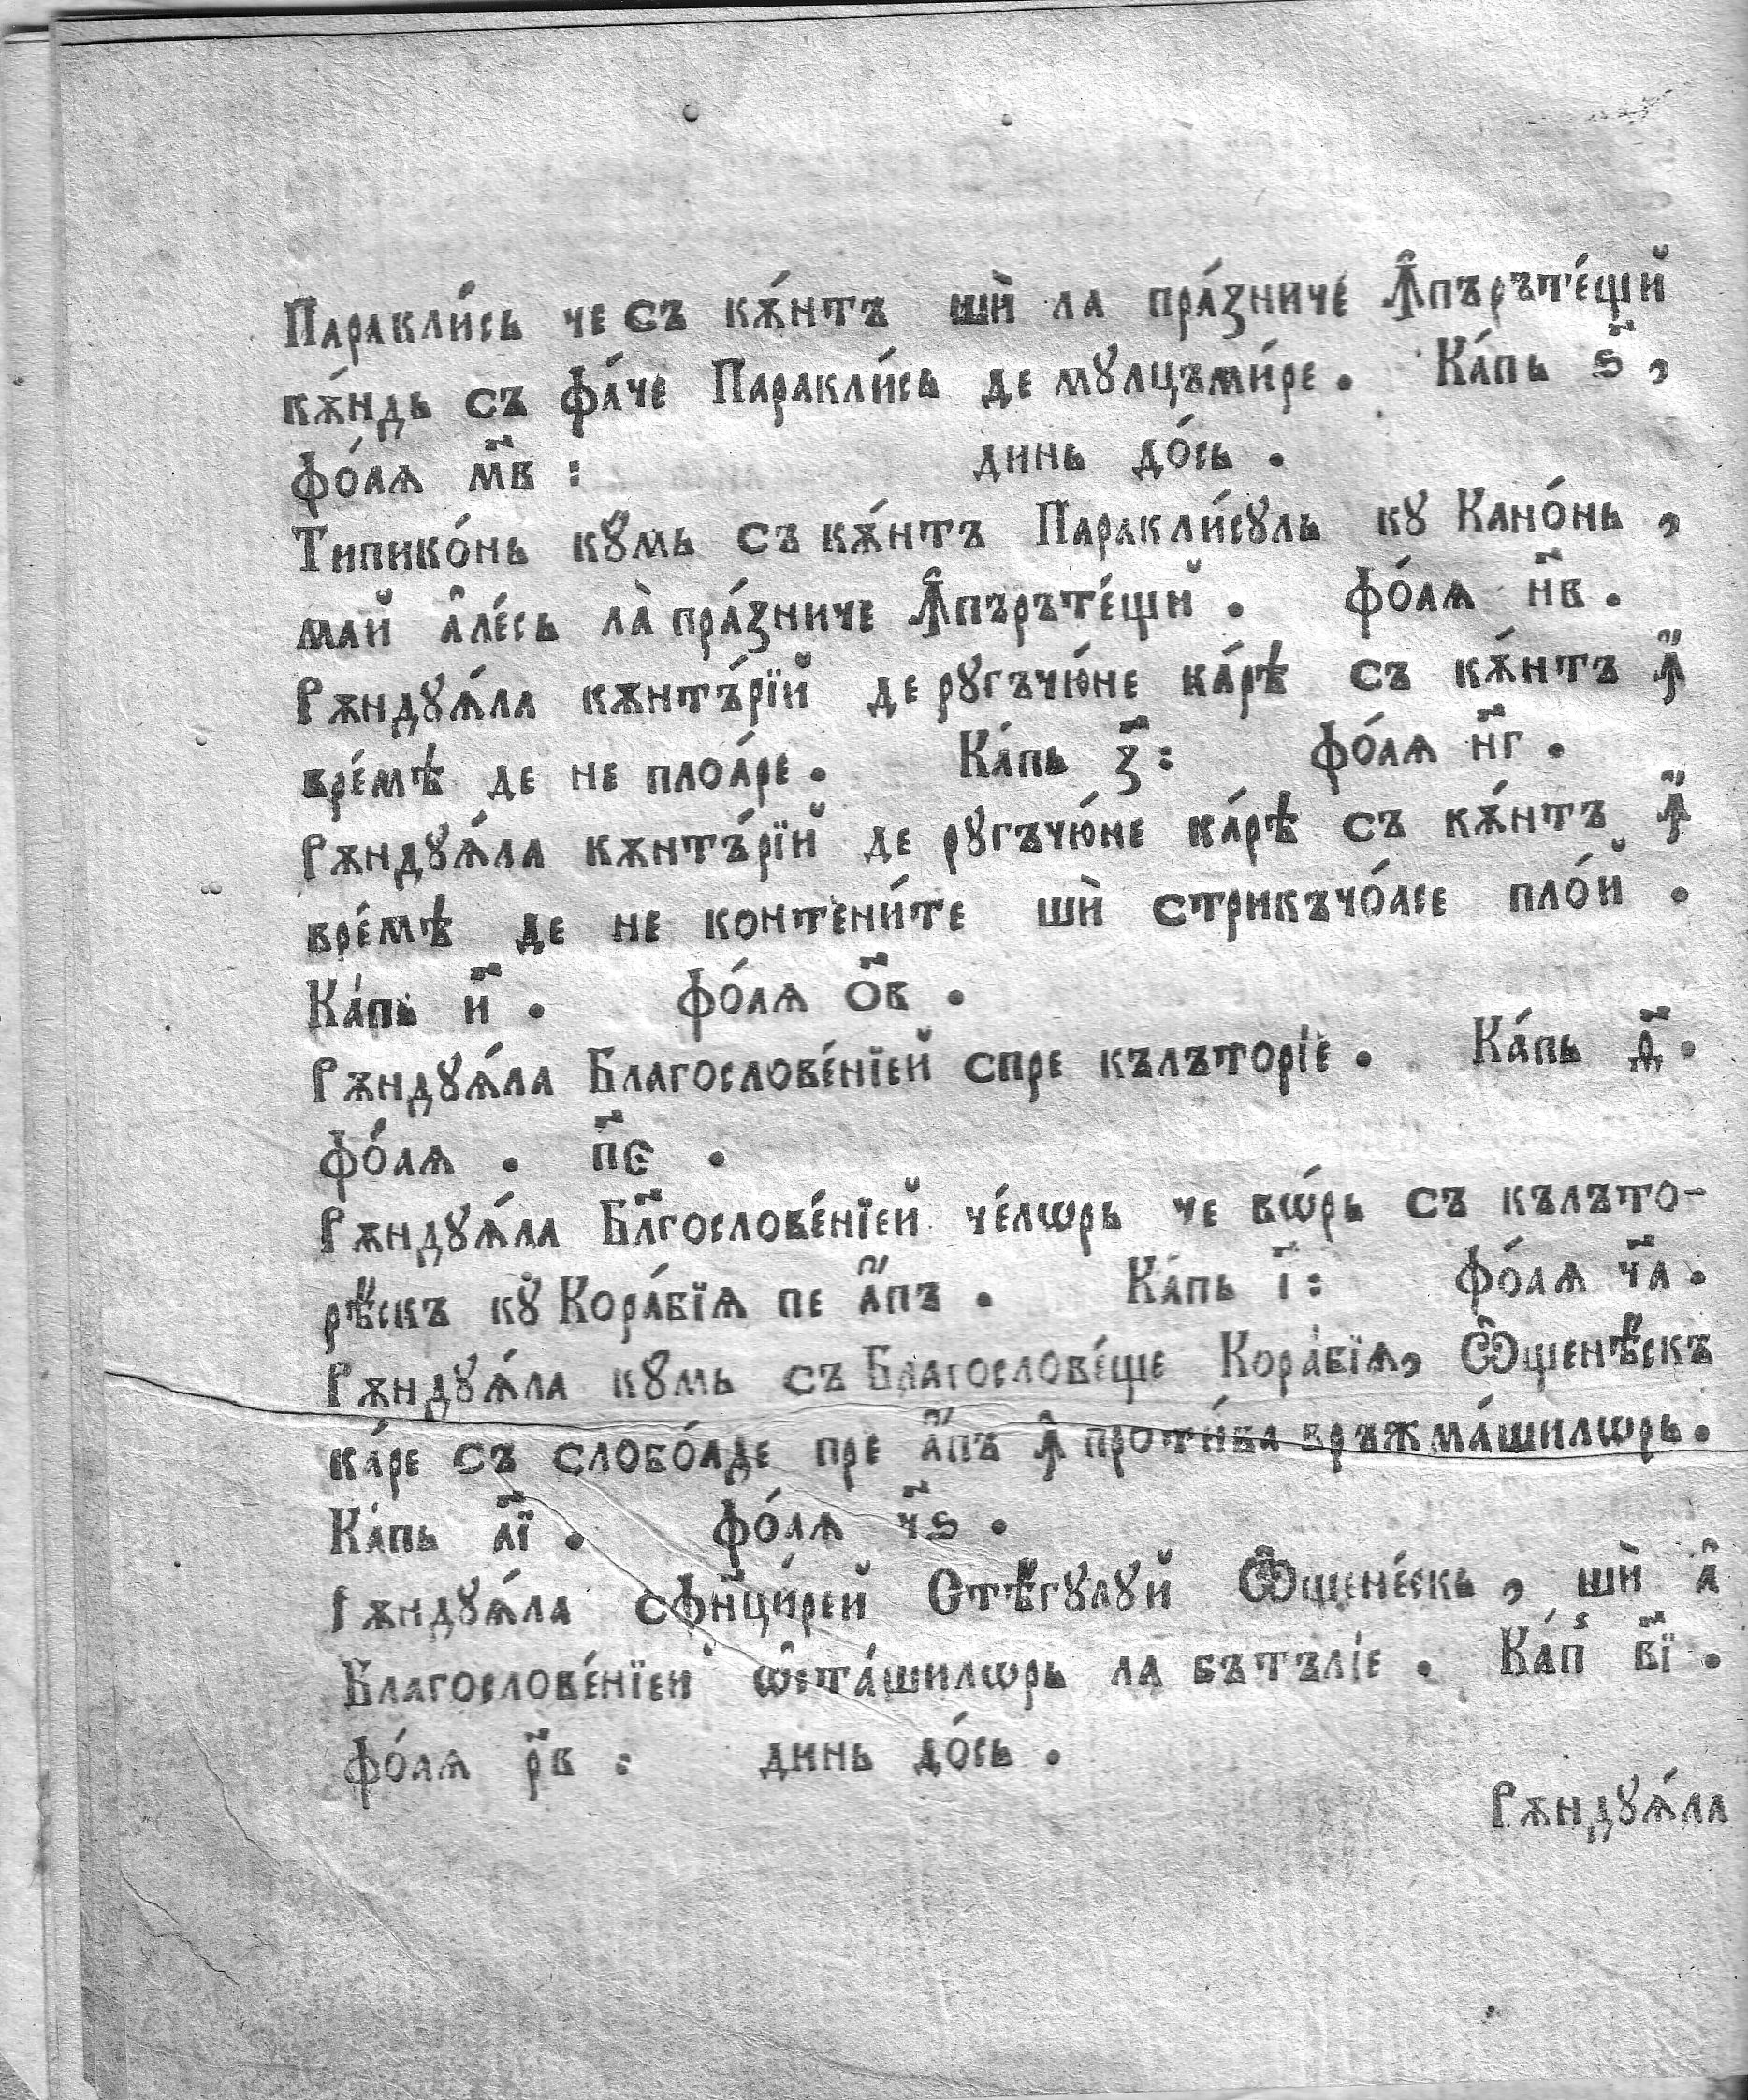 Параклі́сь че съ кѫ́нтъ шѝ ла пра́зниче ꙟ̂пъръте́щй
кѫ́ндь съ фа́че Паракли́сь де мꙋлцъми́ре. Ка́пь ѕ҃,
фо́аѧ м҃в : динь до́сь .
Типико́нь кꙋмь съ кѫ́нтъ Паракли́сꙋль кꙋ Кано́нь ,
май а̂ле́сь ла̀ пра́зниче ꙟ̂пъръте́щй . фо́аѧ н҃в .
Рѫндꙋѧ́ла кѫнтъ́рїй де рꙋгъчю́не ка́рѣ съ кѫ́нтъ ꙟ҆̀
вре́мѣ де не плоа́ре . Ка́пь з҃ : фо́аѧ н҃г .
Рѫндꙋѧ́ла кѫнтъ́рїй де рꙋгъчю́не ка́рѣ съ кѫ́нтъ ꙟ҆̀
вре́мѣ де не контени́те шѝ стрикъчо́асе пло́й .
Ка́пь и҃ . фо́аѧ о҃в .
Рѫндꙋѧ́ла Благослове́нїей спре кълъторі́е . Ка́пь д҃ .
фо́аѧ . п҃є .
Рѫндꙋѧ́ла Бл҃гослове́нїей че́лѡрь че вѡ́рь съ кълъто-
рѣ́скъ кꙋ Кора́бїѧ пе а҆́пъ . Ка́пь і҃ : фо́аѧ ч҃а .
Рѫндꙋѧ́ла кꙋмь съ Благослове́ще Кора́бїѧ, Ѡ̂щенѣ́скъ
ка́ре съ слобо́аде пре а҆́пъ ꙟ̂ проти́ва връжма́шилѡрь.
Ка́пь а҃ї . фо́аѧ ч҃ѕ .
Рѫндꙋѧ́ла сфн҃ци́рей Стѣ́гꙋлꙋй Ѡ̂щене́скь , шѝ а̂
Благослове́нїей ѡ̂ста́шилѡрь ла бътъліе . Ка́п в҃ї .
фо́аѧ р҃в : динь до́сь .
Рѫндꙋѧ́ла